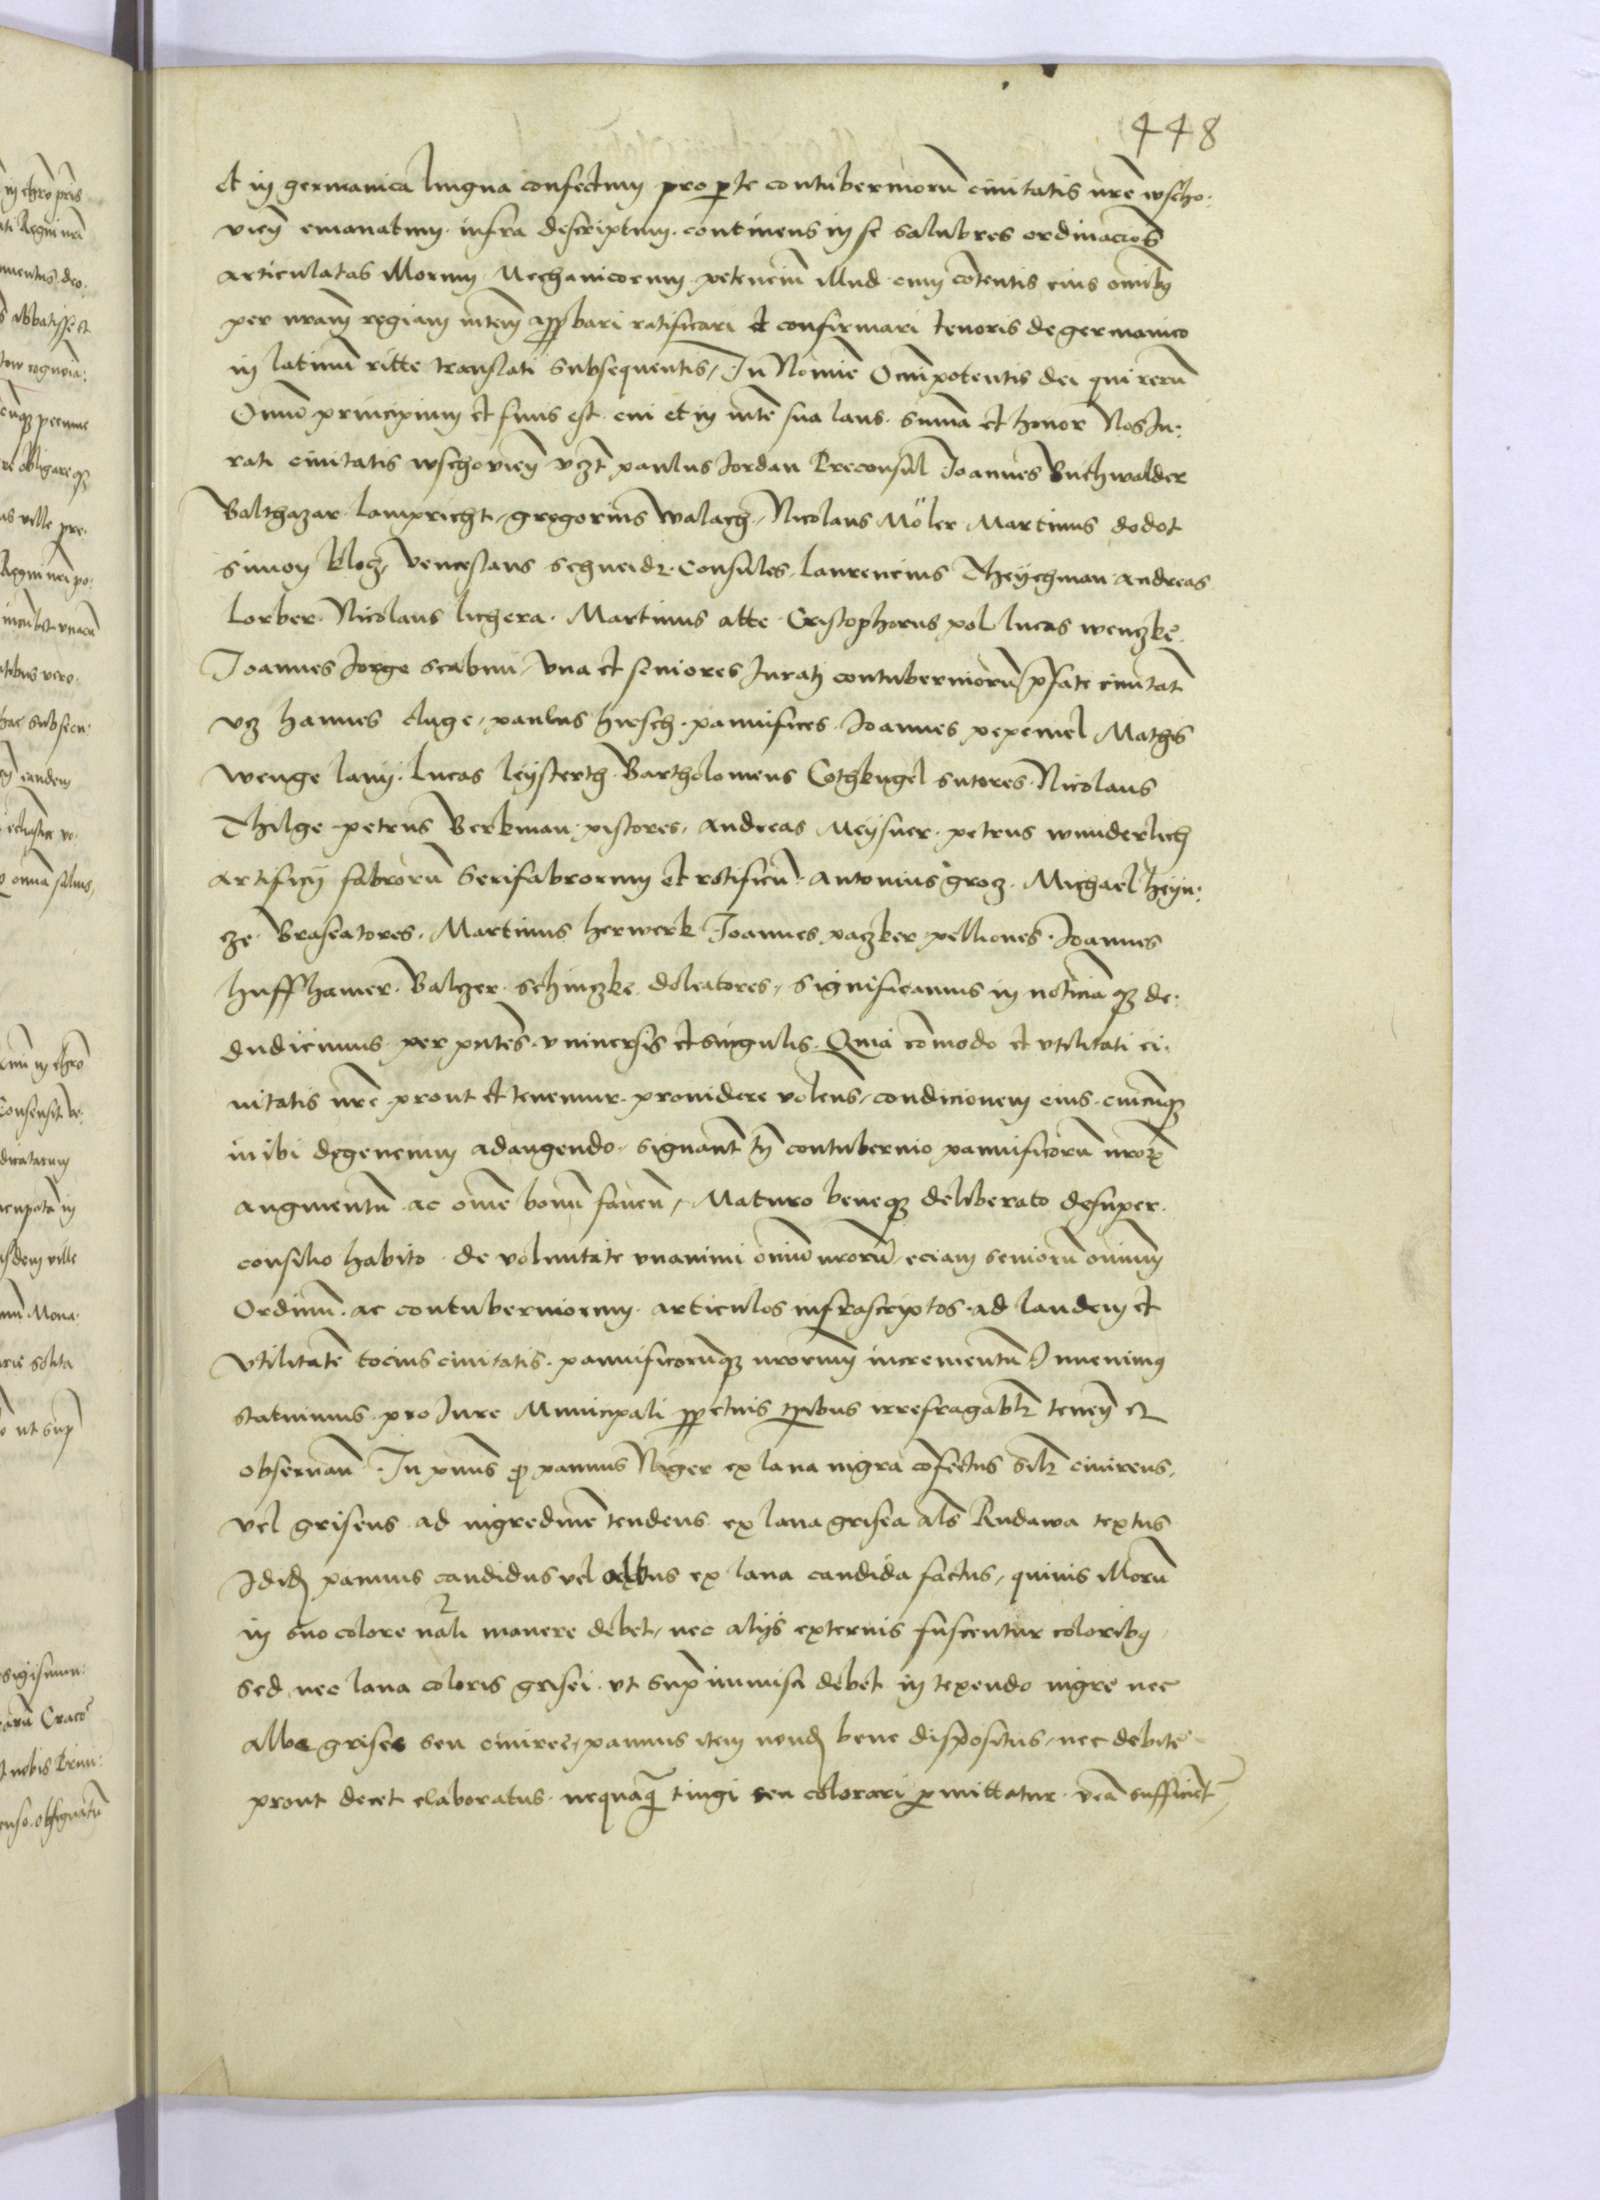 448
et in germanica lingua confectum pro pte contuberniorū ciuitatis nrē wscho:
vien̄ emanatum infra descriptum continens in se salubres ordinaciōēs
articulatas illorum Mechanicorum petenciū illud cum cōtentis eius om̄ibꝫ
per nrām regiam mtem̄ approbari ratificari et confirmari tenoris de germanico
in latinū ritte translati subsequentis, In Nomīe Om̄ipotentis dei qui rerū
Omniū principium et finis est cui et in mte sua laus summa et honor Nos Iu:
rati ciuitatis wschovien̄ vzt paulus Iordan Preconsul Ioannes Buchwalder
Balthazar lampricht, gregorius walach, Nicolaus Möler Martinus dodot
simon kloz, venceslaus schneider Consules, laurencius Theychman andreas
Lorber Nicolaus lichera Martinus atte Cristophorus pol lucas wenczke
Ioannes Iorge scabini, vna et seniores Iurati contuberniorū pfate ciuitat̄
vz hannes cluge, paulus hirsch pannifices Ioannes pepemel Mathis
wenge lanij lucas leysterth Bartholomeus Cothkugel sutores Nicolaus
Thilge petrus Berkman pistores, andreas Meysner petrus wunderlich
artificij fabrorū serifabrorum et rotificū antonius groz Michael heyn:
cze Braseatores Martinus herwerk Ioannes paczker pelliones Ioannes
huffhamer Balczer schinczke doleatores, significamus in noticiā qꝫ de:
ducimus per pntes vniuersis et singulis Quia cōmodo et vtilitati ci:
uitatis nrē prout et tenemur prouidere volens, condicionem eius cuiuscūqꝫ
inibi degencium adaugendo, signant̄ tn̄ contubernio pannificorū nrorꝫ
augmentū ac om̄e bonū fauen̄, Maturo beneqꝫ deliberato desuper
consilio habito de voluntate vnanimi om̄iū nrorū eciam seniorū omnium
Ordinū ac contuberniorum articulos infrascriptos ad laudem et
vtilitatē tocius ciuitatis pannificorūqꝫ nrorum incrementū Inuenimꝯ
statuimus pro Iure Municipali ppetuis tpibus irrefragablr̄ tenen̄ et
obseruan̄ In pmis qꝫ pannus Niger ex lana nigra cōfectus silr̄ cinireus,
vel griseus ad nigredinē tendens ex lana grisea als̄ Rudawa textus
Ididē pannus candidus vel albus ex lana candida factus, quiuis illorū
in suo colore nāli manere debet, nec alijs externis fuscentur coloribꝯ
sed nec lana coloris grisei vt sup̄ immisci debet in texendo nigre nec
albe grisee seu ciniree, pannus item nondū bene dispositus, nec debite
prout decet elaboratus nequaqꝫ tingi seu colorari pmittatur